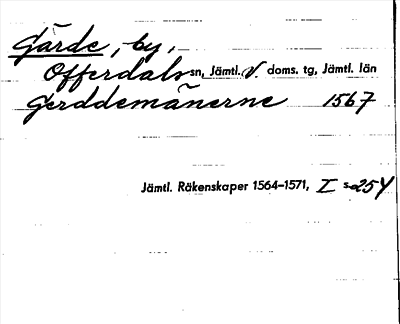 Gärde, by,
Offerdals sn, Jämtl. V. doms. tg, Jämtl. län
Gerddemänerne 1567
Jämtl. Räkenskaper 1564–1571, I s. 254